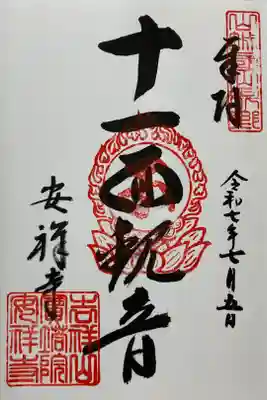 奉拝
令和七年七月五日
十一面観音
安祥寺
吉祥山
寳塔院
安祥寺